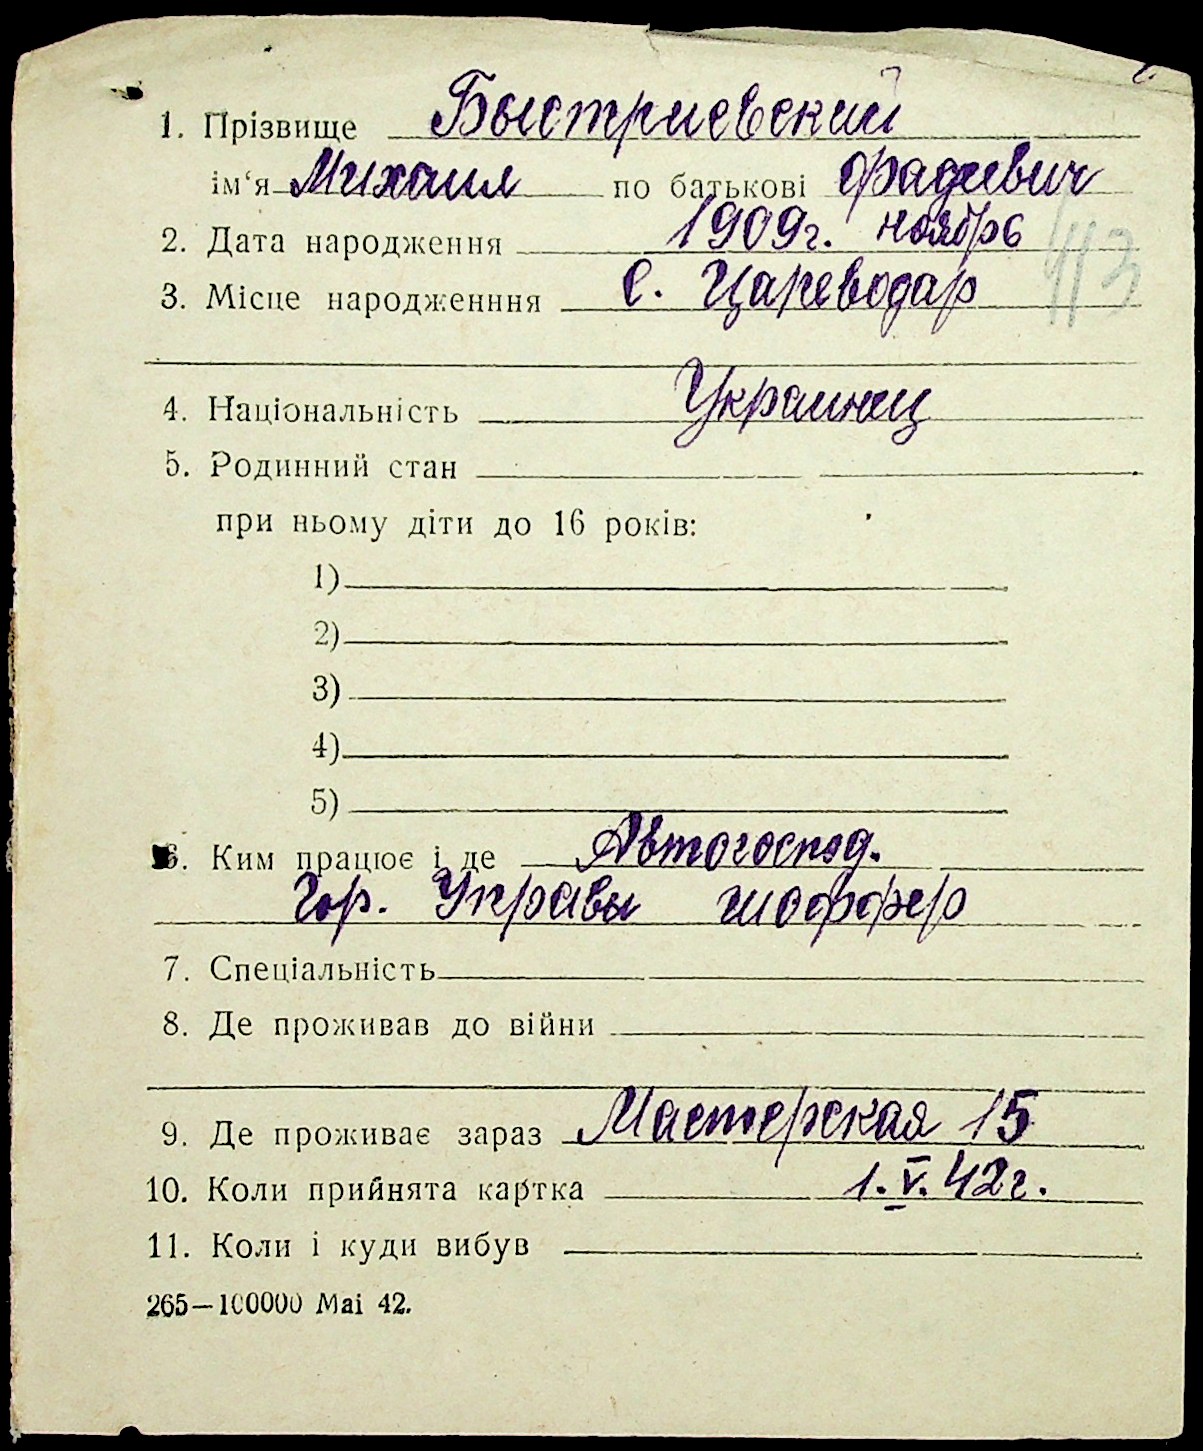 1. Прізвище Быстриевский
ім‘я Михаил по батькові Фадеевич
2. Дата народження 1909г. ноябрь
113
3. Місце народженння с. Цареводар
4. Національність Украинец
5. Родинний стан
при ньому діти до 16 років:
1)
2)
3)
4)
5)
6. Ким працює і де Автогоспод.
Гор. Управы шоффер
7. Спеціальність
8. Де проживав до війни
9. Де проживає зараз Мастерская 15
10. Коли прийнята картка 1.V.42г.
11. Коли і куди вибув
265—100000 Mai 42.